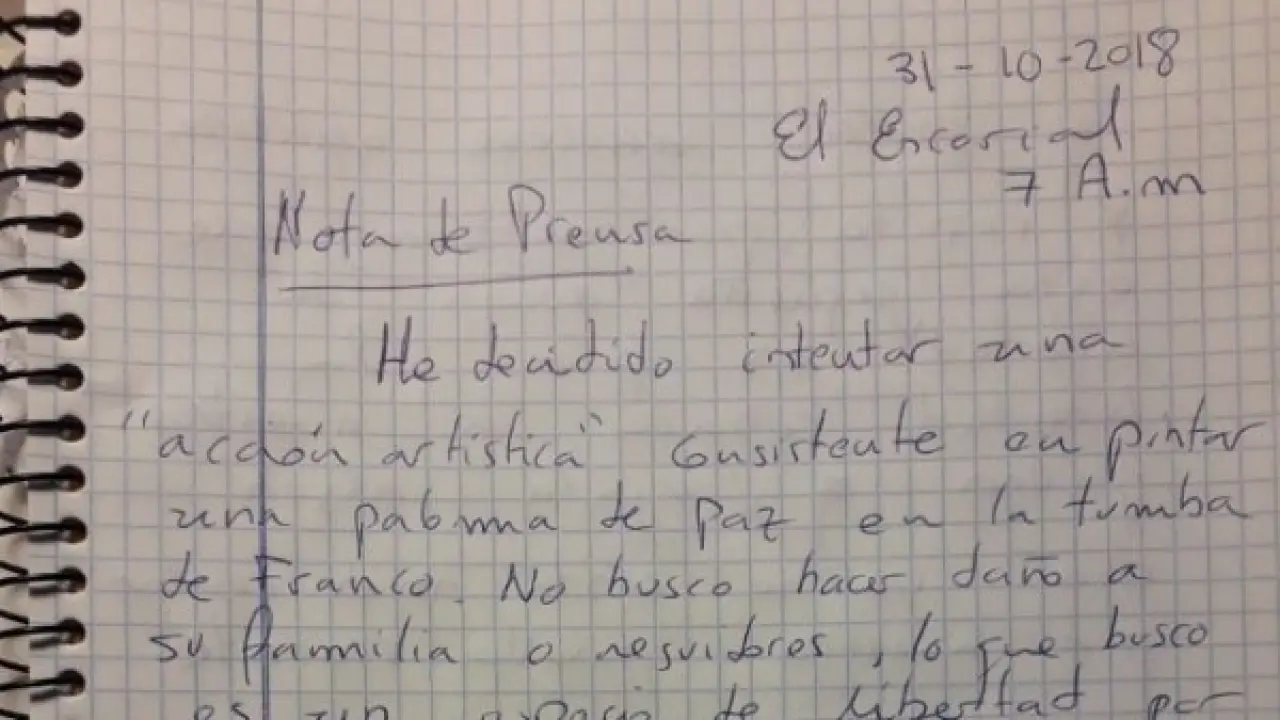 31-10-2018
El Escorial
7 A.m
Nota de Prensa
He decidido intentar una
"acción artistica" consistente en pintar
una paloma de Paz en la tumba
de Franco. No busco hacer daño a
su familia o seguidores, lo que busco
es un espacio de libertad por